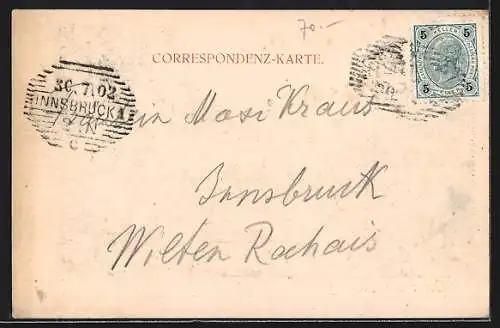 70.-
CORRESPONDENZ-KARTE.
5 5
5 5
30.7.02
INNSBRUCK 1
C
Maxi Kraus
Innsbruck
Wilten